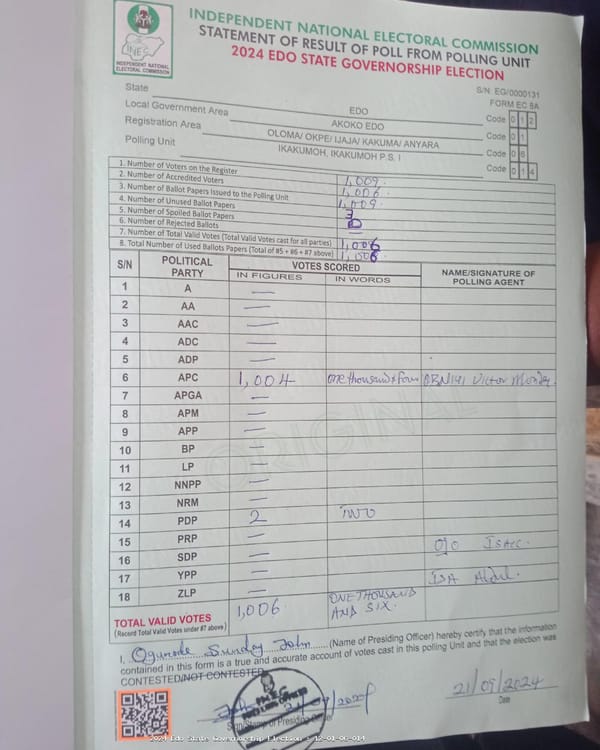 INDEPENDENT NATIONAL ELECTORAL COMMISSION
STATEMENT OF RESULT OF POLL FROM POLLING UNIT
2024 EDO STATE GOVERNORSHIP ELECTION
INEC
INDEPENDENT NATIONAL
ELECTORAL COMMISSION
S/N: EG/0000131
FORM EC 8A
State EDO Code 0 1 2
Local Government Area AKOKO EDO Code 0 1
Registration Area OLOMA/ OKPE/ IJAJA/ KAKUMA/ ANYARA Code 0 6
Polling Unit IKAKUMOH, IKAKUMOH P.S. I Code 0 1 4
1. Number of Voters on the Register 1,009.
2. Number of Accredited Voters 1,006.
3. Number of Ballot Papers Issued to the Polling Unit 1,009.
4. Number of Unused Ballot Papers 3
5. Number of Spoiled Ballot Papers
6. Number of Rejected Ballots
7. Number of Total Valid Votes (Total Valid Votes cast for all parties) 1,006
8. Total Number of Used Ballots Papers (Total of #5 + #6 + #7 above) 1,006
S/N POLITICAL PARTY VOTES SCORED NAME/SIGNATURE OF POLLING AGENT
IN FIGURES IN WORDS
1 A —
2 AA —
3 AAC —
4 ADC —
5 ADP —
6 APC 1,004 one thousand & four OBNIYI Victor Monday
7 APGA —
8 APM —
9 APP —
10 BP —
11 LP —
12 NNPP —
13 NRM —
14 PDP 2 TWO
15 PRP —
16 SDP — OJO ISAEC.
17 YPP — ISA Abdul.
18 ZLP —
TOTAL VALID VOTES 1,006 ONE THOUSAND AND SIX.
(Record Total Valid Votes under #7 above)
ORIGINAL
I, Ogunode Sunday John (Name of Presiding Officer) hereby certify that the information
contained in this form is a true and accurate account of votes cast in this polling Unit and that the election was
CONTESTED/NOT CONTESTED
21/09/2024
Date
2024 Edo State Governorship Election - 12-01-06-014